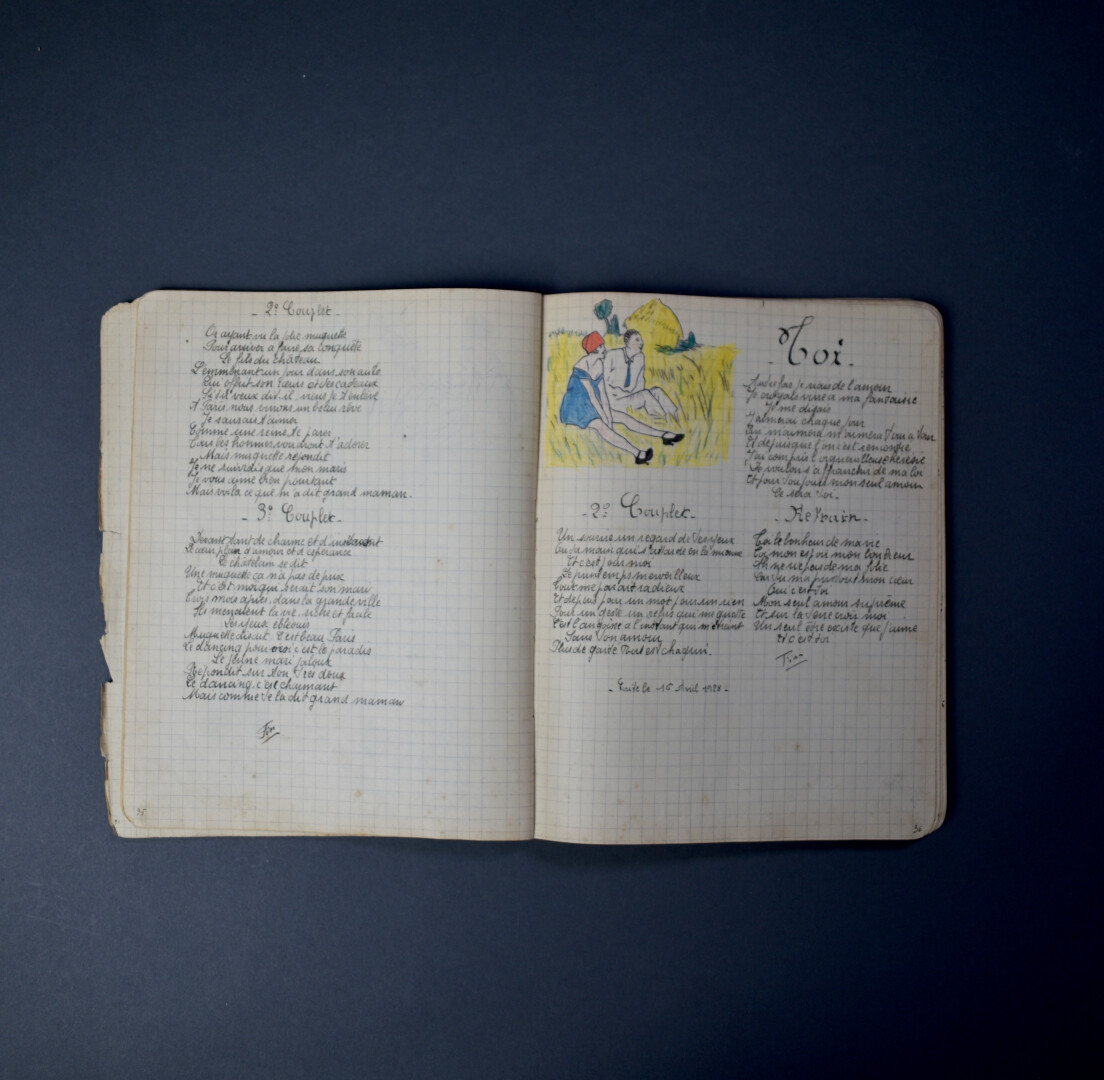 - 2e Couplet -
Or ayant vu la plie muguette
Pour arriver a faire sa conquête
Le fils du château
L'emmenant un jour dans son auto
Lui offrit son cœurs et des cadeaux
Si tu veux dit il, viens je t'enlève
A Paris nous vivrons un beau rêve
Je saurais t'aimer
Comme une reine te parer
Tous les hommes voudront t'adorer
Mais muguette répondit
Je ne suivrais que mon maris
Je vous aime bien pourtant
Mais voila ce que m'a dit grand maman.
- 3e Couplet -
Devant tant de charme et d'innocent
Le cœur plein d'amour et d'espérance
Le châtelain se dit
Une muguette ça n'a pas de prix
Et c'est moi qui serait son mari
Trois mois après, dans la grande ville
Ils menaient la vie, libre et facile
Les yeux éblouis
Muguette disait C'est beau Paris
Le dancing pour moi c'est le paradis
Le jeune mari jaloux
Répondit sur ton très doux
Le dancing c'est charmant
Mais comme te la dit grand maman
Fin
35
- Toi -
Autrefois je riais de l'amour
Je voulais vivre a ma fantaisie
Je me disais
J'aimerai chaque jour
Qui m'aimera m'aimera tour a tour
Et depuis que l'on s'est rencontré
J'ai compris l'orgueilleuse hérésie
Je voulais s'affranchir de ma loi
Et pour toujours mon seul amour
Ce sera toi -
- 2e Couplet -
Un sourire un regard de tes yeux
Ou ta main qui s'attarde en la mienne
Et c'est pour moi
Le printemps merveilleux
Tout me parait radieux
Et depuis pour un mot pour un rien
Pour un geste un refus qui me guette
C'est l'angoisse a l'instant qui m'étreint
Sans ton amour
Plus de gaité tout est chagrin.
- Refrain -
Toi le bonheur de ma vie
Toi mon espoir mon
Je ne vis pas de ma folie
Car tu ma pris tout mon cœur
Oui c'est toi
Mon seul amour suprême
Et sur la terre crois moi
Un seul être existe que j'aime
Et c'est toi
Fin
- Faite le 15 Avril
36